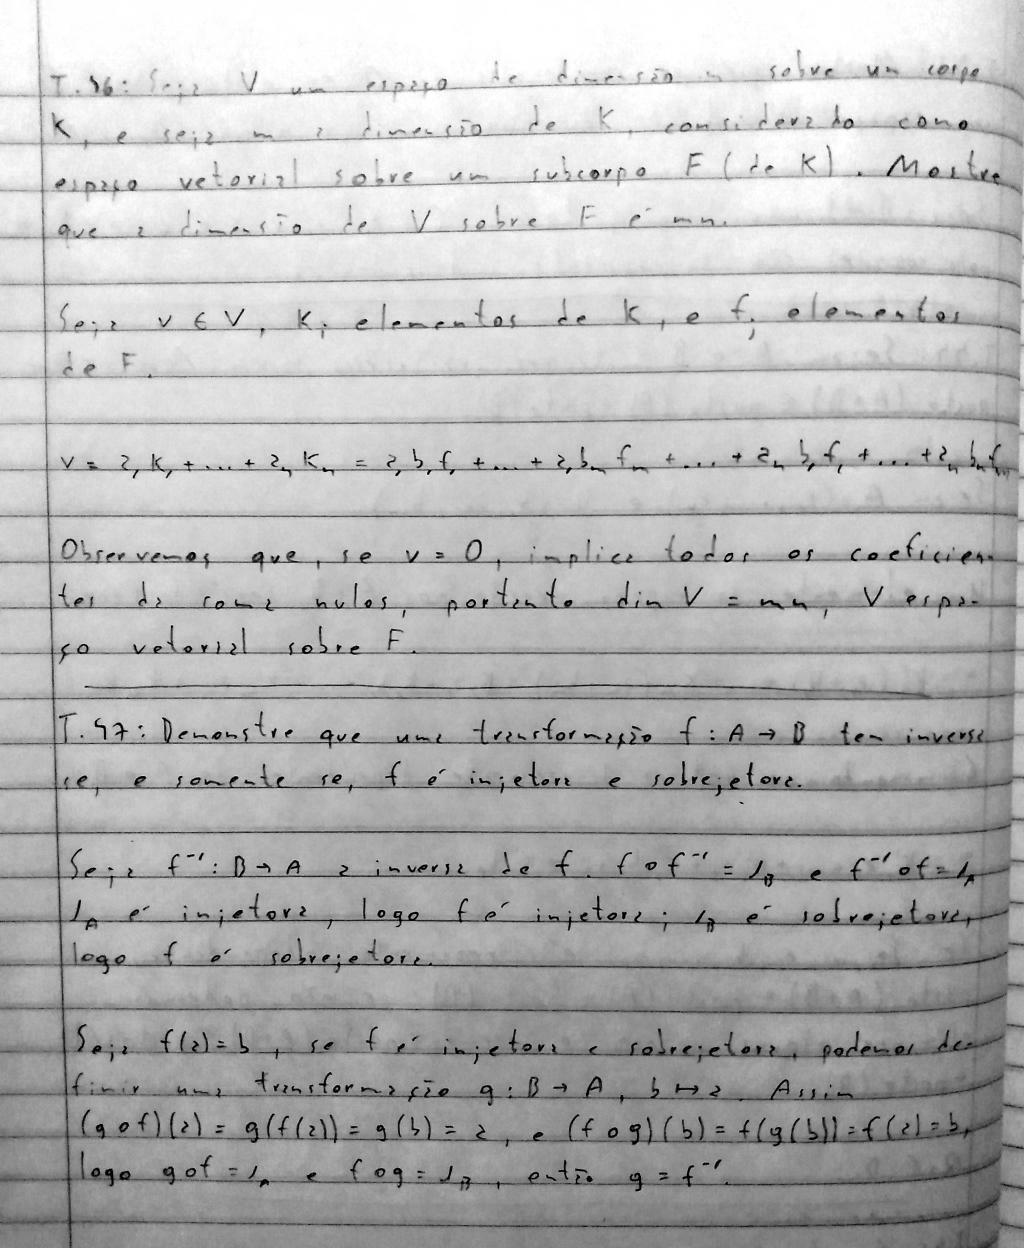 T.46: Seja V um espaço de dimensão n sobre um corpo
K, e seja m a dimensão de K, considerado como
espaço vetorial sobre um subcorpo F (de K). Mostre
que a dimensão de V sobre F é mn.
Seja v ∈ V, Kᵢ elementos de K, e fⱼ elementos
de F.
v = a₁K₁ + ... + aₙKₙ = a₁b₁f₁ + ... + a₁bₘfₘ + ... + aₙb₁f₁ + ... + aₙbₘfₘ
Observemos que, se v = 0, implica todos os coeficien-
tes da soma nulos, portanto dim V = mn, V espa-
ço vetorial sobre F.
T.47: Demonstre que uma transformação f : A → B tem inversa
se, e somente se, f é injetora e sobrejetora.
Seja f⁻¹: B → A a inversa de f. f o f⁻¹ = 1_B e f⁻¹ o f = 1_A
1_A é injetora, logo f é injetora; 1_B é sobrejetora,
logo f é sobrejetora.
Seja f(a) = b, se f é injetora e sobrejetora, podemos de-
finir uma transformação g : B → A, b ↦ a. Assim
(g o f)(a) = g(f(a)) = g(b) = a, e (f o g)(b) = f(g(b)) = f(a) = b,
logo g o f = 1_A e f o g = 1_B, então g = f⁻¹.